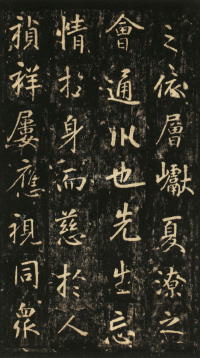 之依層巘夏潦之
會通川也先生忘
情於身而慈於人
禎祥屢應視同衆